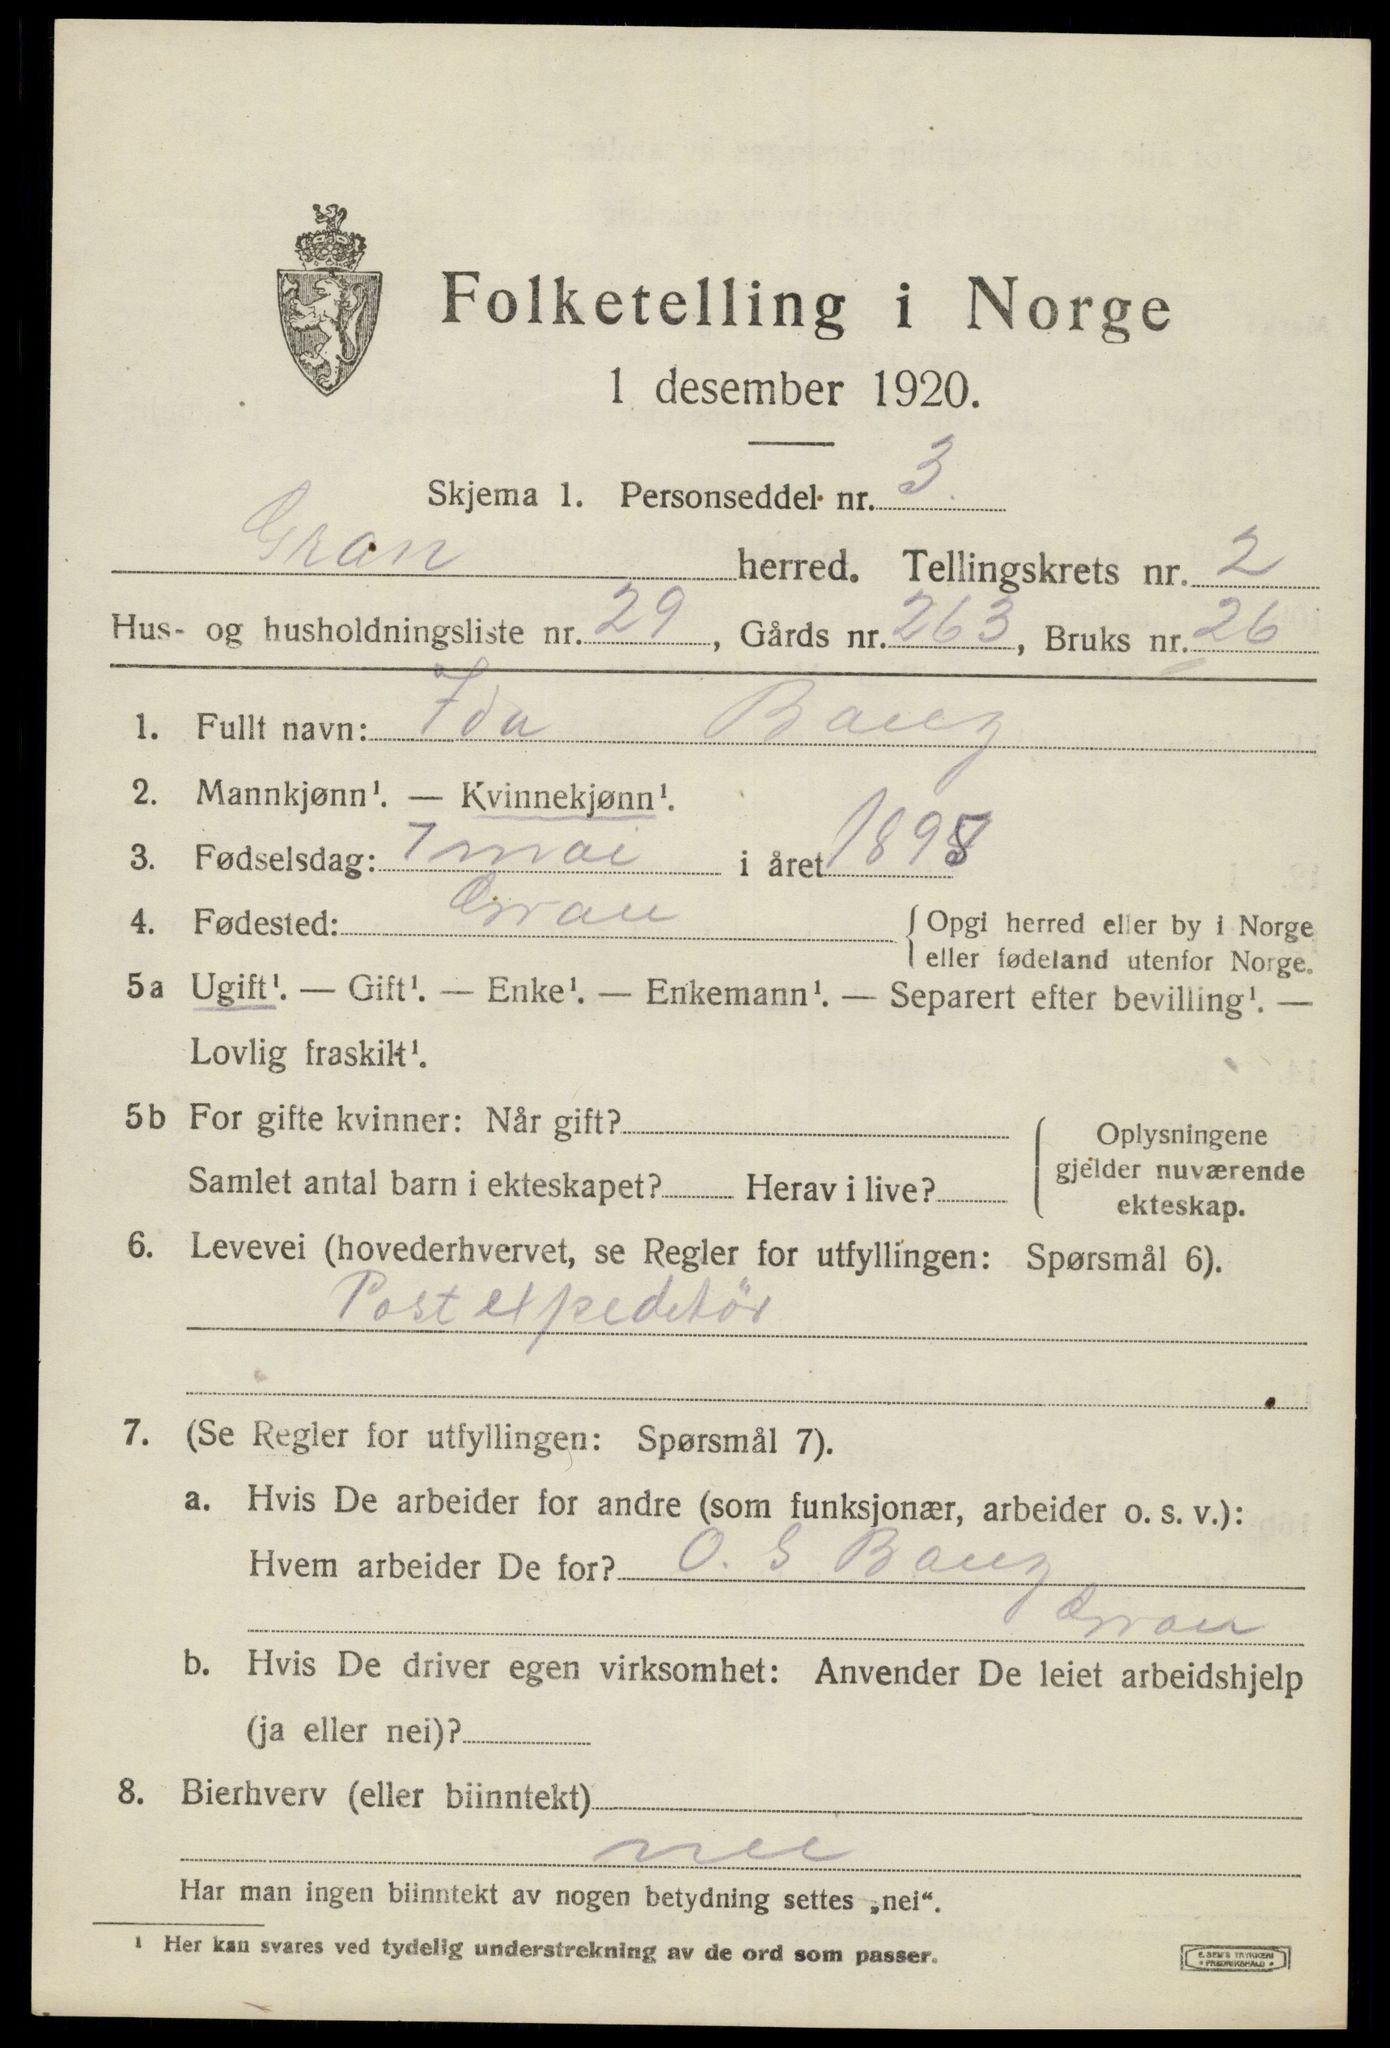 Folketelling i Norge
1 desember 1920.
Skjema 1. Personseddel nr. 3.
Gran herred. Tellingskrets nr. 2
Hus- og husholdningsliste nr. 29, Gårds nr. 263, Bruks nr. 26
1. Fullt navn: Ida Bang
2. Mannkjønn¹. — Kvinnekjønn¹.
3. Fødselsdag: 7 mai i året
4. Fødested: Gran { Opgi herred eller by i Norge
eller fødeland utenfor Norge.
5a Ugift¹. — Gift¹. — Enke¹. — Enkemann¹. — Separert efter bevilling¹. —
Lovlig fraskilt¹.
5b For gifte kvinner: Når gift?
Samlet antal barn i ekteskapet? Herav i live?
Oplysningene
gjelder nuværende
ekteskap.
6. Levevei (hovederhvervet, se Regler for utfyllingen: Spørsmål 6).
Postexpeditör
7. (Se Regler for utfyllingen: Spørsmål 7).
a. Hvis De arbeider for andre (som funksjonær, arbeider o. s. v.):
Hvem arbeider De for? O. G Bang
Gran
b. Hvis De driver egen virksomhet: Anvender De leiet arbeidshjelp
(ja eller nei)?
8. Bierhverv (eller biinntekt)
nei
Har man ingen biinntekt av nogen betydning settes „nei“.
¹ Her kan svares ved tydelig understrekning av de ord som passer.
E. SEM'S TRYKKERI
• FREDRIKSHALD •